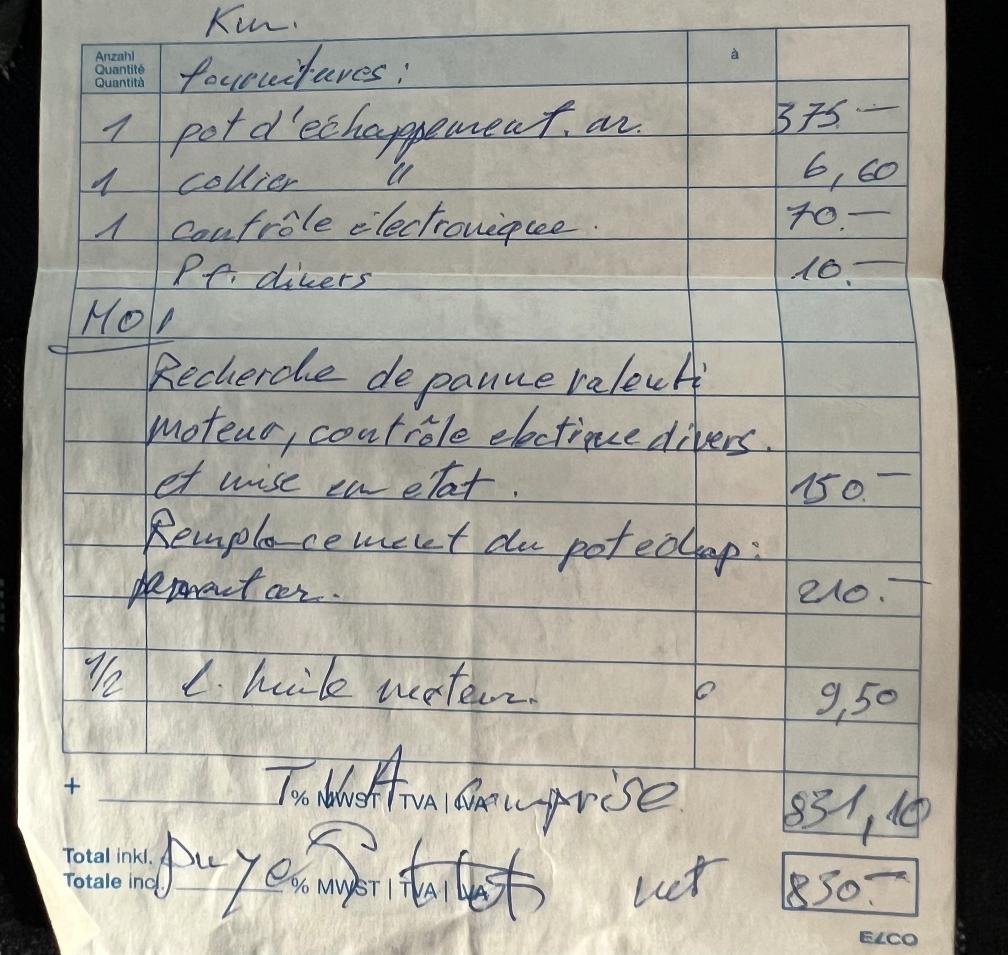 Km.
Anzahl
Quantité
Quantità
fournitures:
à
1 pot d'échappement. ar. 375.—
1 collier " 6,60
1 contrôle électronique. 70.—
Pf. divers 10.—
MO
Recherche de panne ralenti
moteur, contrôle electique divers.
et mise en etat. 150.—
Remplacement du pot echap:
ar. 210.—
1/2 l. huile moteur. 9,50
+ % MWST | TVA | IVA T.V.A comprise 831,10
Total inkl.
Totale incl. % MWST | TVA | IVA net 830.—
ELCO